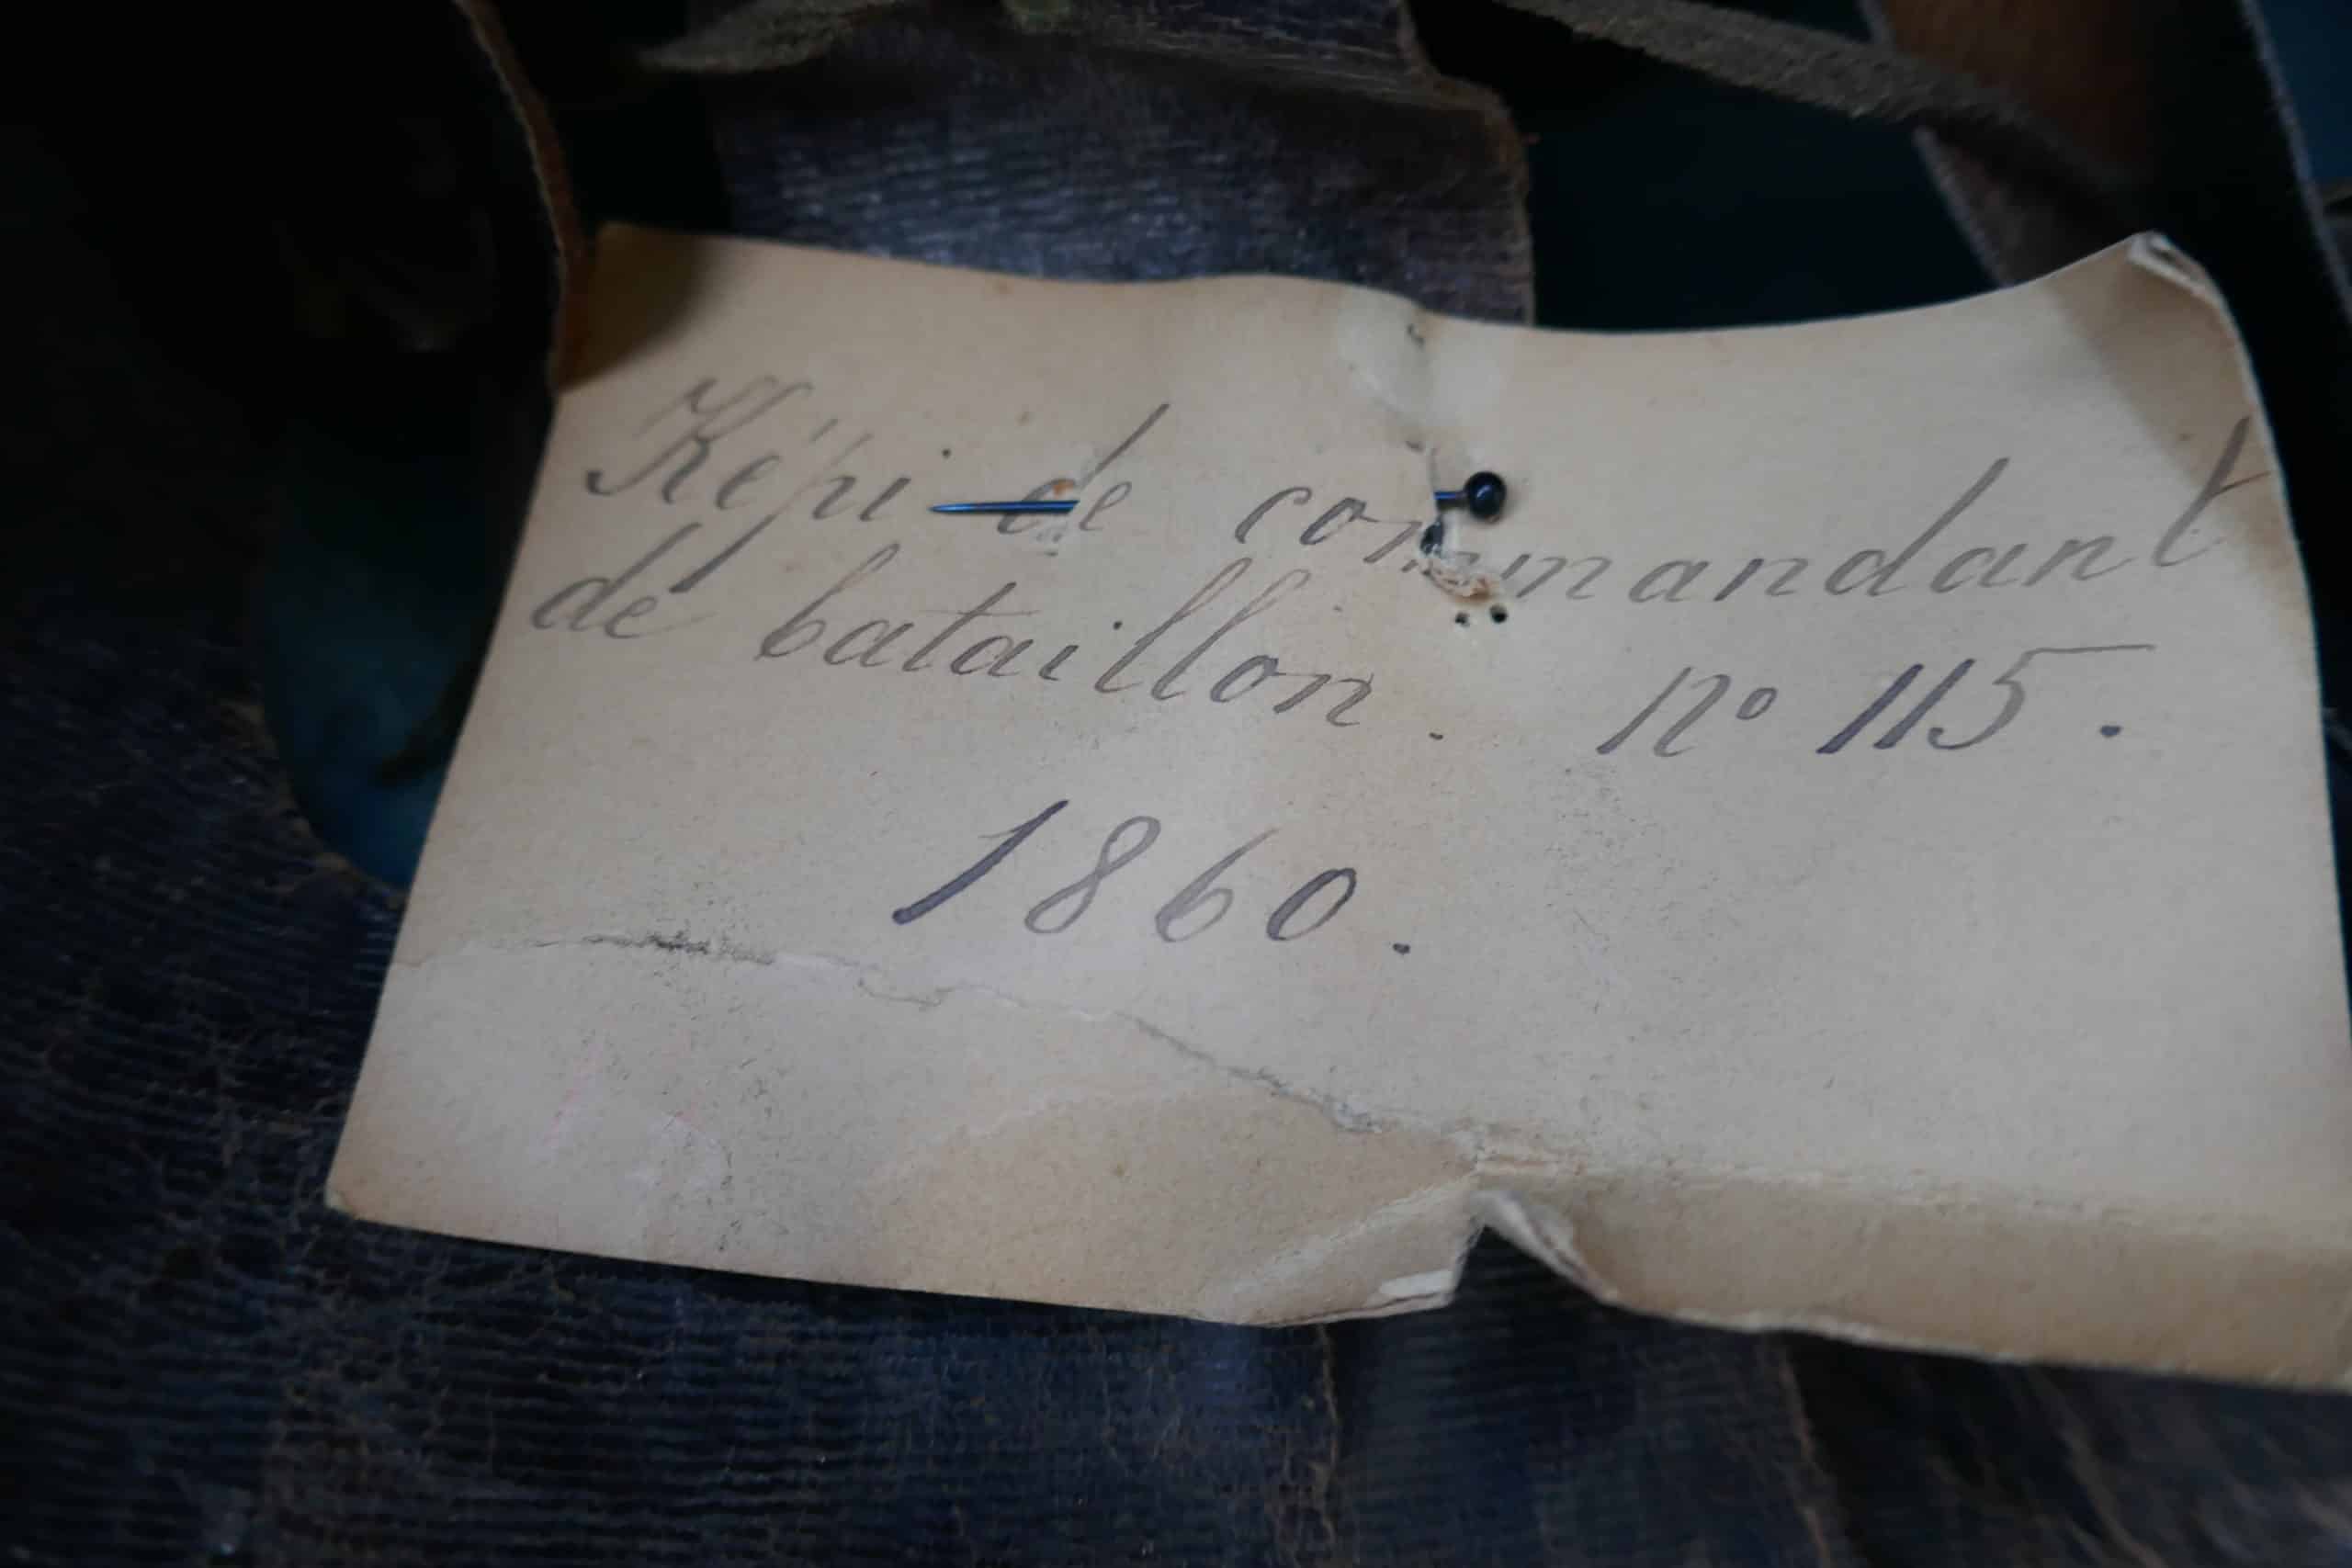 Képi de commandant
de bataillon. No 115.
1860.